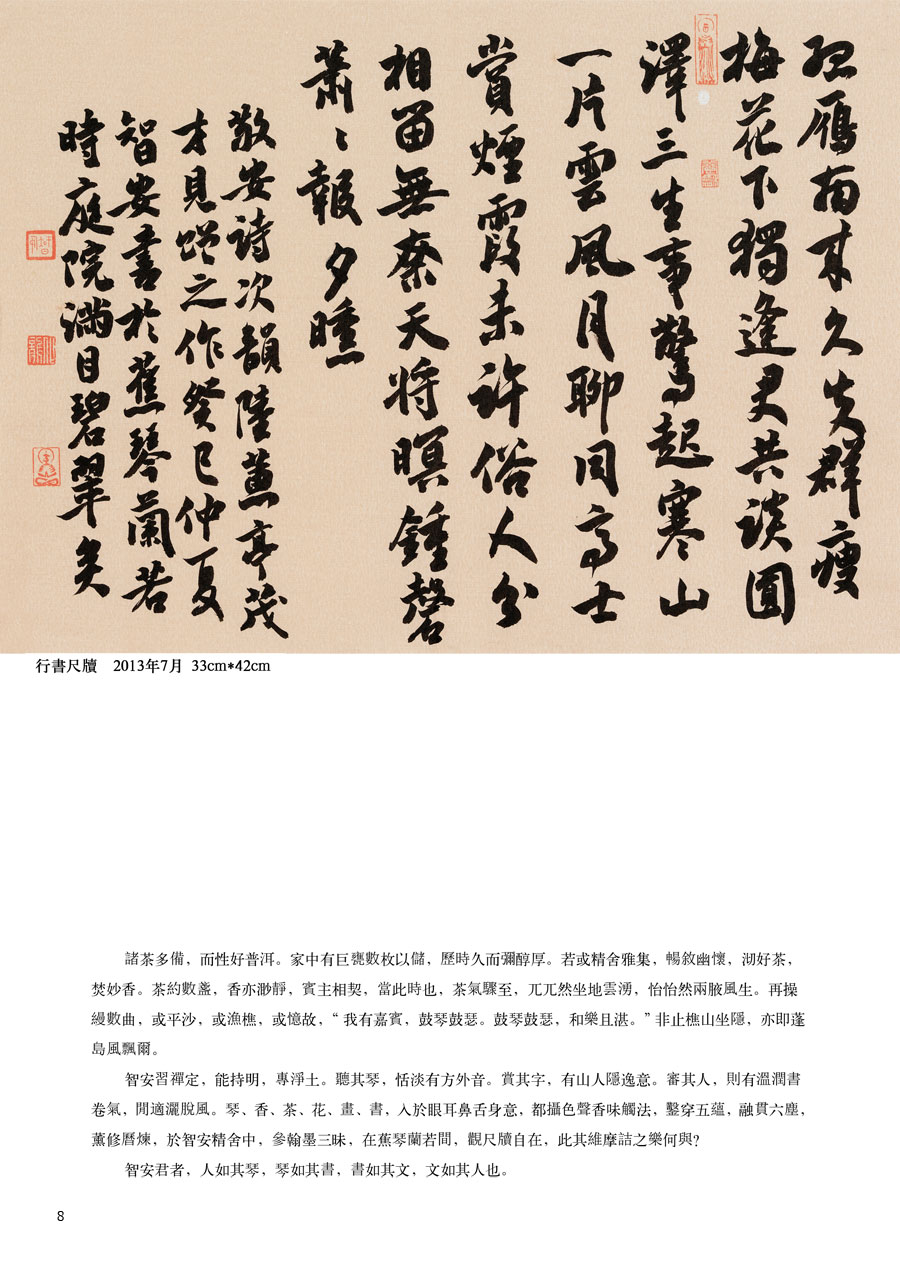 孤雁南來久失群瘦
梅花下獨逢君共談圓
澤三生事驚起寒山
一片雲風月聊同高士
賞煙霞未許俗人分
相留無奈天將暝鍾磬
蕭〻報夕曛
敬安詩次韻陸蕙亭茂
才見贈之作癸巳仲夏
智安書於蕉琴蘭若
時庭院滿目碧翠矣
行書尺牘　2013年7月 33cm*42cm
諸茶多備，而性好普洱。家中有巨甕數枚以儲，歷時久而彌醇厚。若或精舍雅集，暢敘幽懷，沏好茶，
焚妙香。茶約數盞，香亦渺靜，賓主相契，當此時也，茶氣驟至，兀兀然坐地雲湧，怡怡然兩腋風生。再操
縵數曲，或平沙，或漁樵，或憶故，“我有嘉賓，鼓琴鼓瑟。鼓琴鼓瑟，和樂且湛。”非止樵山坐隱，亦即蓬
島風飄爾。
智安習禪定，能持明，專淨土。聽其琴，恬淡有方外音。賞其字，有山人隱逸意。審其人，則有溫潤書
卷氣，閒適灑脫風。琴、香、茶、花、畫、書，入於眼耳鼻舌身意，都攝色聲香味觸法，鑿穿五蘊，融貫六塵，
薰修曆煉，於智安精舍中，參翰墨三昧，在蕉琴蘭若間，觀尺牘自在，此其維摩詰之樂何與?
智安君者，人如其琴，琴如其書，書如其文，文如其人也。
8